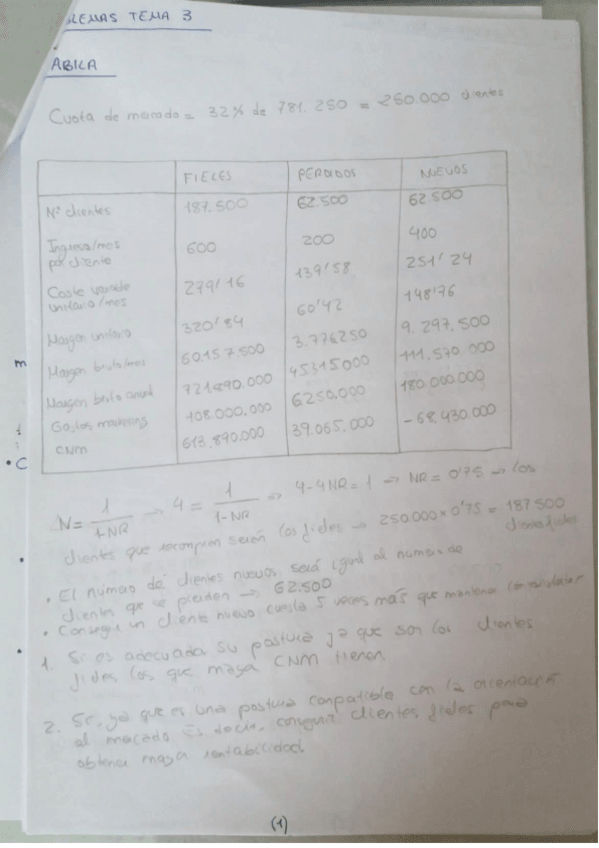 LEMAS TEMA 3
ABILA
Cuota de mercado = 32% de 781.250 = 250.000 clientes
FIELES PERDIDOS NUEVOS
Nº clientes 187.500 62.500 62.500
Ingreso/mes por cliente 600 200 400
Coste variable unitario/mes 279'16 139'58 251'24
Margen unitario 320'84 60'42 148'76
Margen bruto/mes 60.157.500 3.776250 9.297.500
Margen bruto anual 721.890.000 45315000 111.570.000
Gastos marketing 108.000.000 6.250.000 180.000.000
CNM 613.890.000 39.065.000 -68.430.000
N = 1/1-NR → 4 = 1/1-NR → 4-4NR = 1 → NR = 0'75 → los
clientes que recompran serán los fieles → 250.000 x 0'75 = 187.500
clientes fieles
• El número de clientes nuevos será igual al número de
clientes que se pierden → 62.500
• Conseguir un cliente nuevo cuesta 5 veces más que mantener
1. Si es adecuada su postura ya que son los clientes
fieles los que mayor CNM tienen
2. Si, ya que es una postura compatible con la orientación
al mercado. Es decir, conseguir clientes fieles para
obtener mayor rentabilidad.
(1)